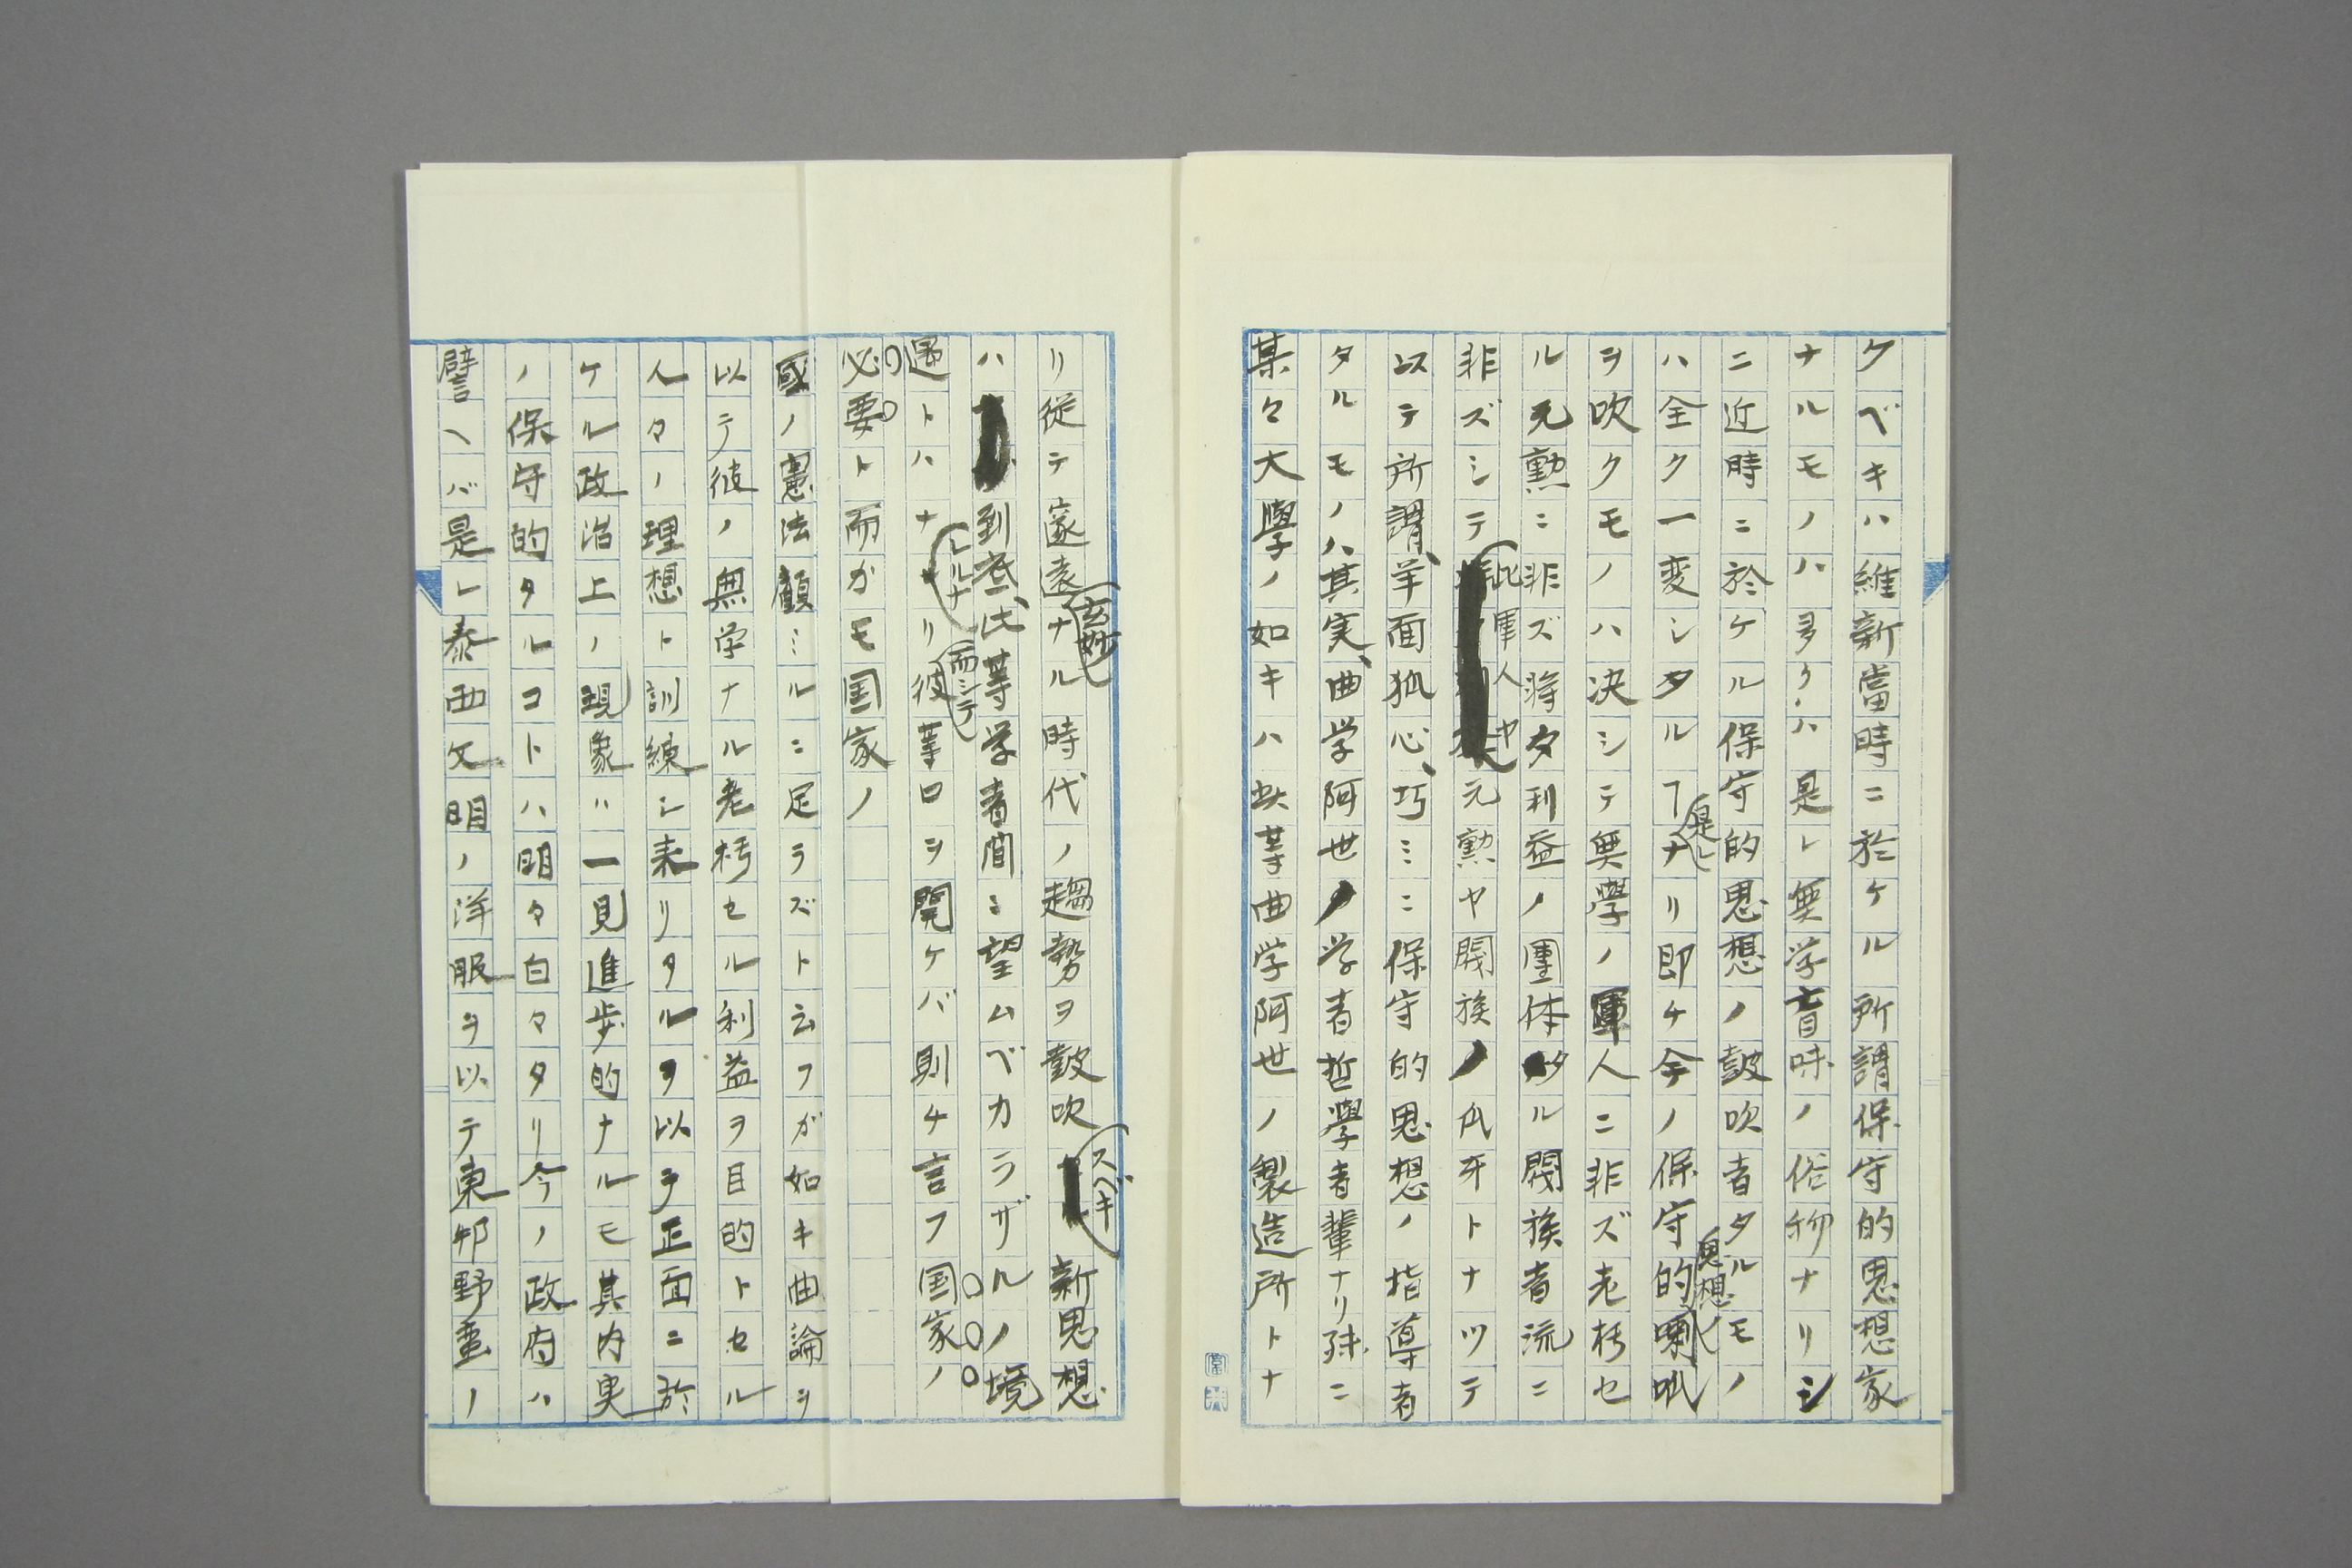 クベキハ維新當時ニ於ケル所謂保守的思想家
ナルモノハ多クハ是レ無学盲昧ノ俗物ナリシ
ニ近時ニ於ケル保守的思想ノ皷吹者タルモノ
ハ全ク一変シタルヿ是レナリ即チ今ノ保守的思想ノ喇叭
ヲ吹クモノハ决シテ無學ノ軍人ニ非ズ老朽セ
ル元勲ニ非ズ將タ利益ノ團体タル閥族者流ニ
非ズシテ此軍人ヤ元勲ヤ閥族ノ爪牙トナツテ
以テ所謂、羊面狐心、巧ミニ保守的思想ノ指導者
タルモノハ其実、曲学阿世ノ学者哲學者輩ナリ殊ニ
某々大學ノ如キハ此等曲学阿世ノ製造所トナ
リ従テ邃遠玄妙ナル時代ノ趨勢ヲ皷吹スベキ新思想
ハ到底、此等学者間ニ望ムベカラザルノ境
遇トハナレルナリ而シテ彼等口ヲ開ケバ則チ言フ国家ノ
必要ト而カモ国家ノ
國ノ憲法顧ミルニ足ラズト云フガ如キ曲論ヲ
以テ彼ノ無学ナル老朽セル利益ヲ目的トセル
人々ノ理想ト訓練シ来リタルヲ以テ正面ニ於
ケル政治上ノ現象ハ一見進歩的ナルモ其内実
ノ保守的タルコトハ明々白々タリ今ノ政府ハ
譬ヘバ是レ泰西文明ノ洋服ヲ以テ東邦野蛮ノ